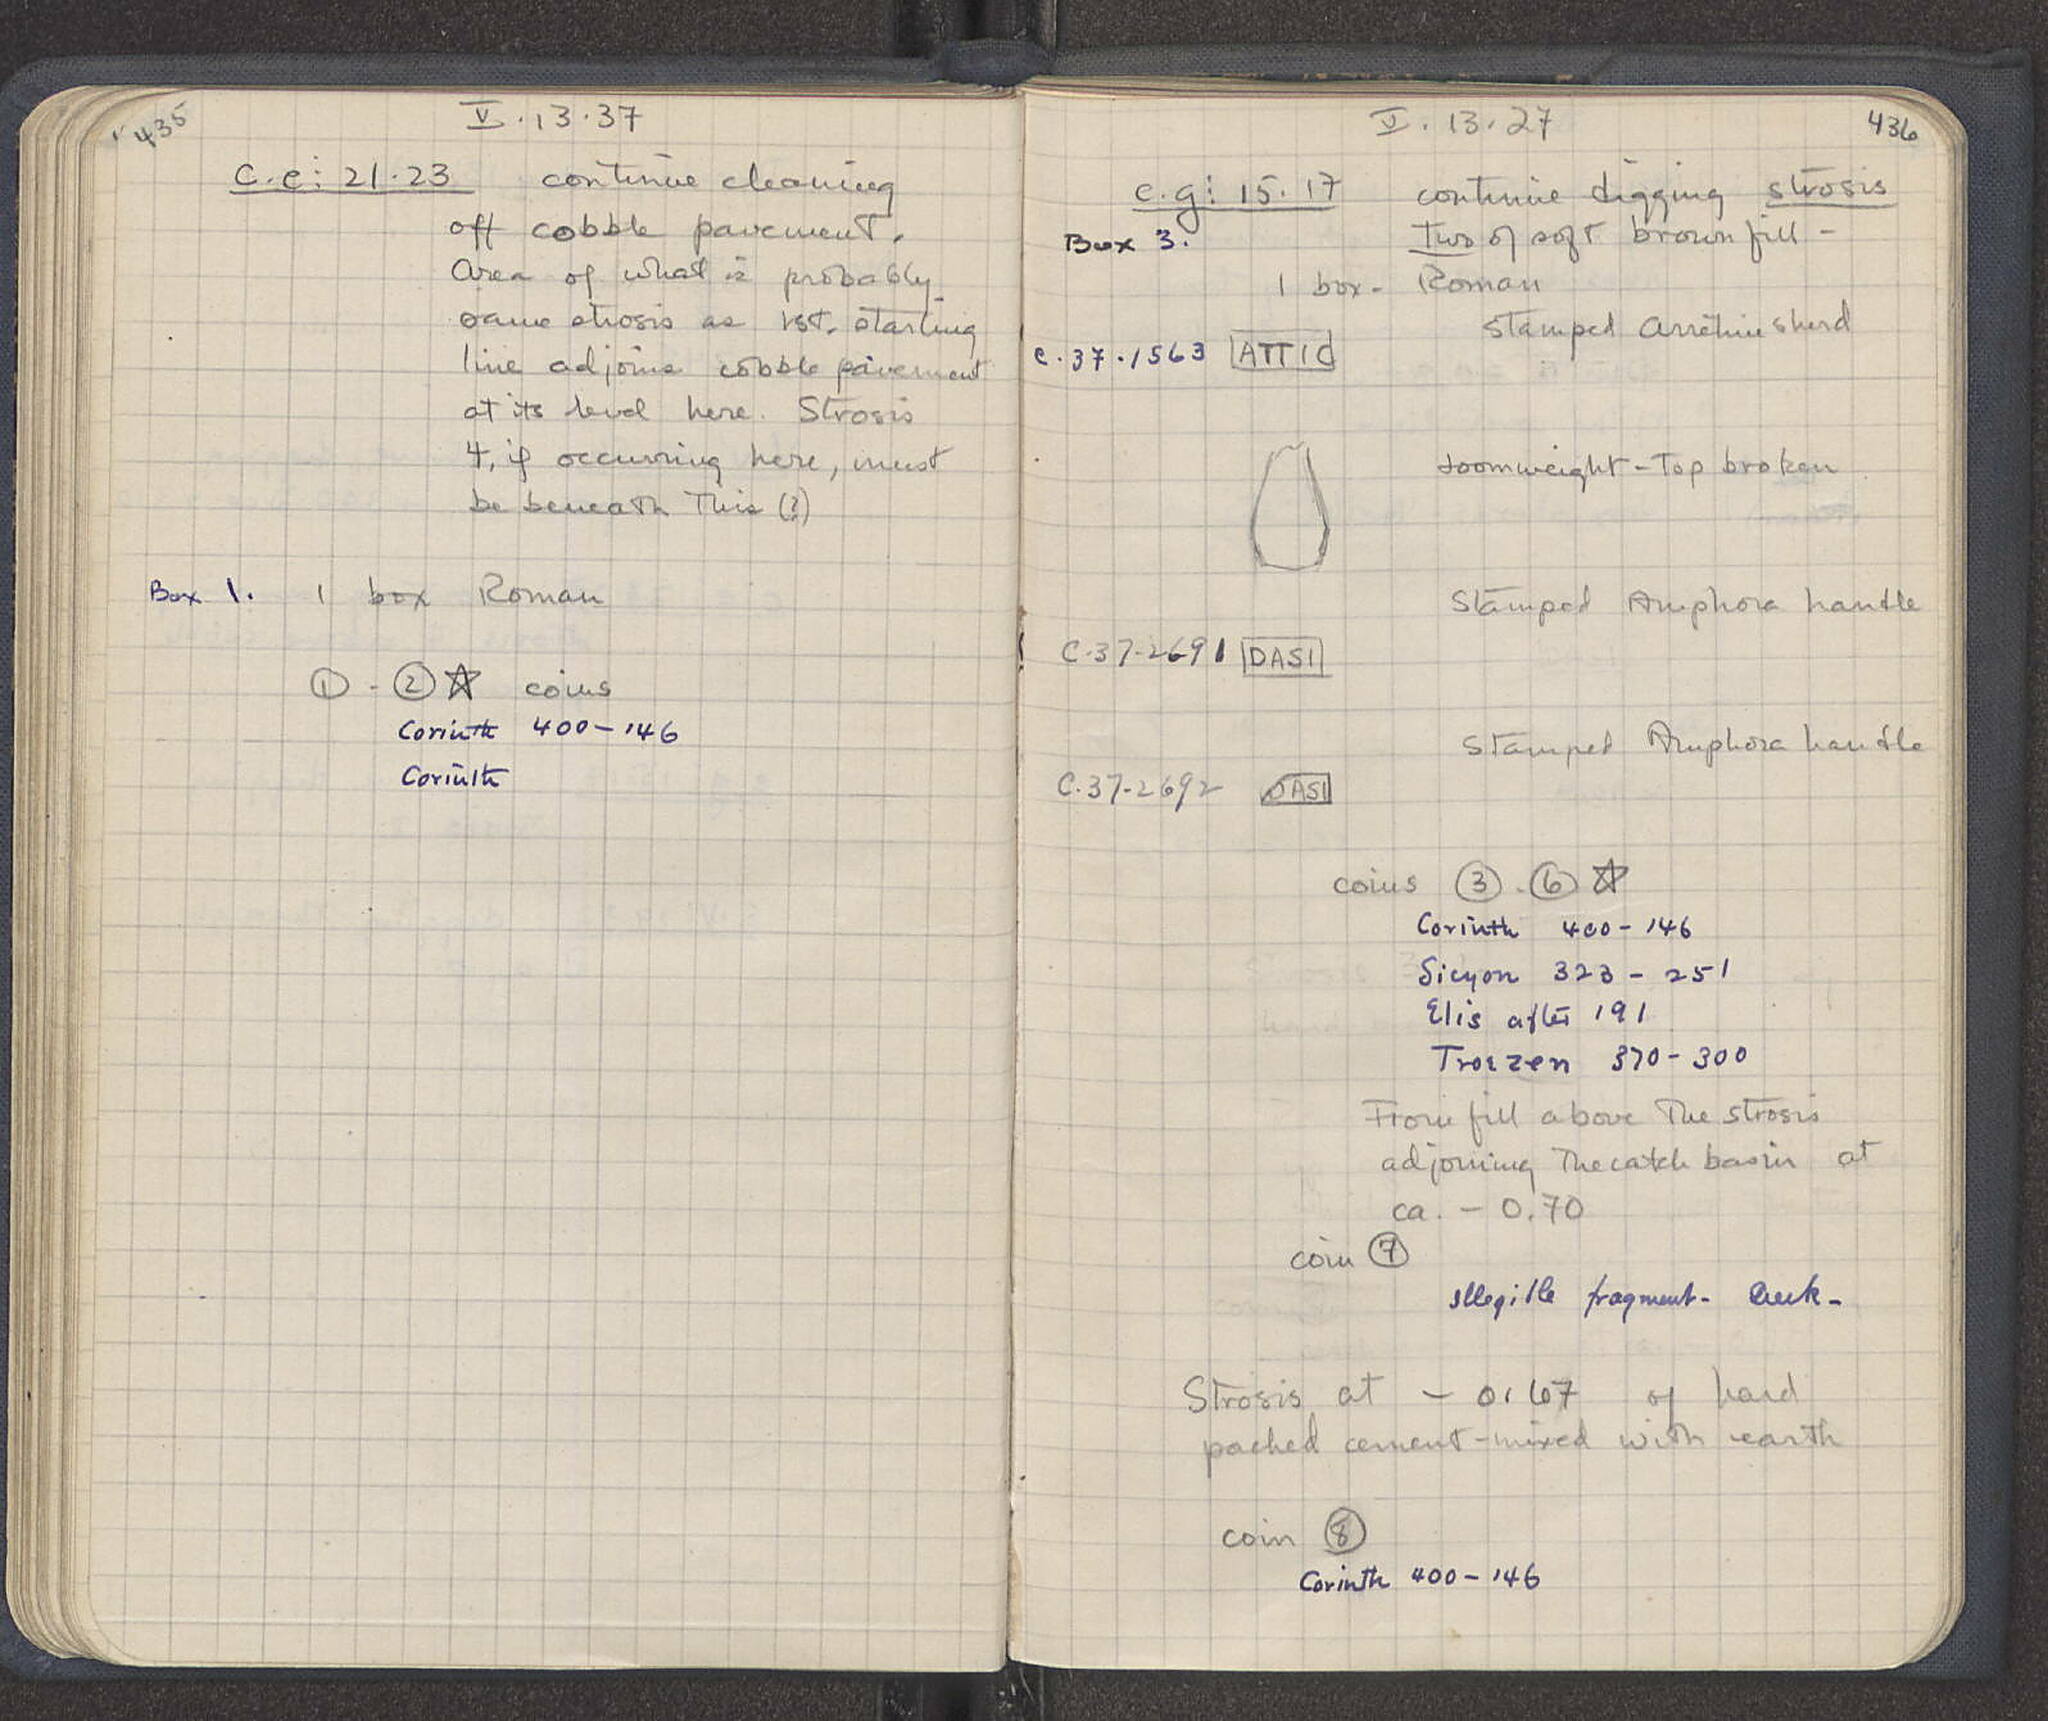 435
V. 13. 37
C.e: 21.23 continue cleaning
off cobble pavement.
Area of what is probably
same strosis as 1st. starting
line adjoins cobble pavement
at its level here. Strosis
4, if occurring here, must
be beneath this (?)
Box 1. 1 box Roman
① - ② ☆ coins
Corinth 400-146
Corinth
V. 13. 27
436
e.g: 15.17 continue digging strosis
Box 3. Two of soft brown fill -
1 box - Roman
Stamped Arretine sherd
C.37.1563 ATTIC
Loomweight - Top broken
Stamped Amphora handle
C.37-2691 DASI
Stamped Amphora handle
C.37-2692 DASI
coins ③ - ⑥ ☆
Corinth 400-146
Sicyon 323-251
Elis after 191
Troezen 370-300
From fill above the strosis
adjoining the catch basin at
ca. - 0.70
coin ⑦
illegible fragment - Greek -
Strosis at - 0.67 of hard
packed cement-mixed with earth
coin ⑧
Corinth 400-146